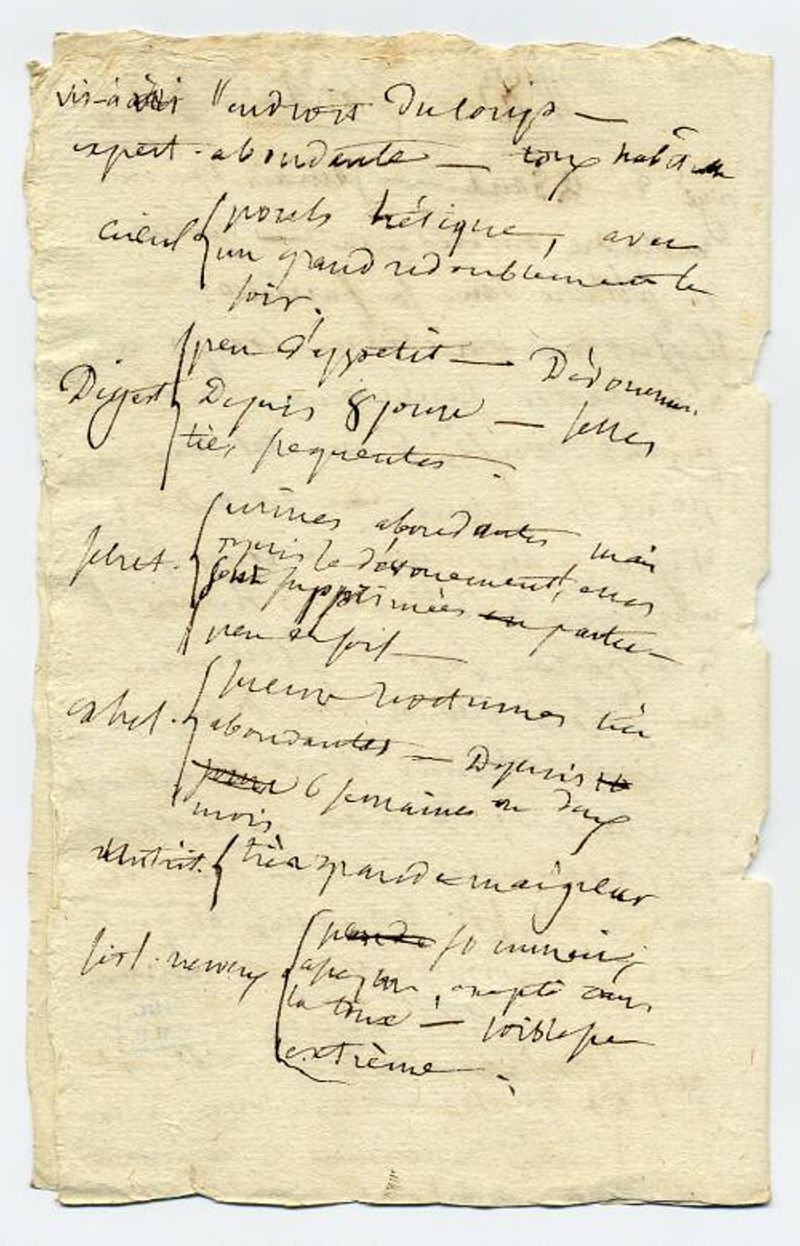 vis-à-vis l'endroit du coup —
expect. abondante — toux habituelle
circul. pouls hétique, avec
un grand redoublement le
soir.
Digest. peu d'appétit — Dévoiement
Depuis 8 jours — selles
très fréquentes.
secret. urines abondantes mais
depuis le dévoiement, elles
sont supprimées en partie —
peu de soif —
exhal. sueurs nocturnes très
abondantes — Depuis
jours 6 semaines ou deux
mois
nutrit. très grande maigreur
sist. nerveux perte sommeil
, excepté dans
la toux — foiblesse
extrême —.